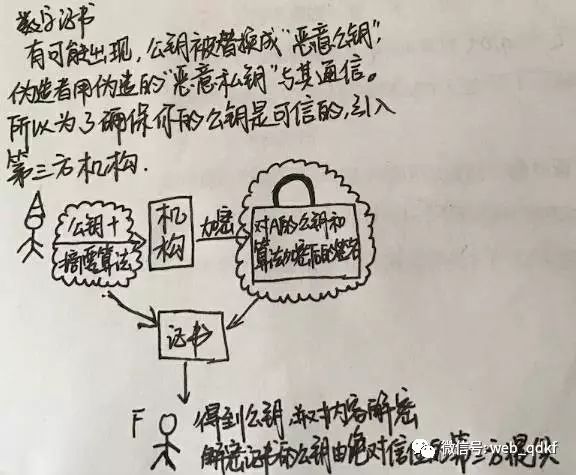 数字证书
有可能出现，公钥被替换成"恶意公钥"，
伪造者用伪造的"恶意私钥"与其通信。
所以为了确保你的公钥是可信的，引入
第三方机构.
公钥+
摘要算法
机构
加密
对A的公钥和
算法加密后的签名
证书
F
得到公钥，并对内容解密
解密证书的公钥由绝对信任的第三方提供
微信号: web_qdkf